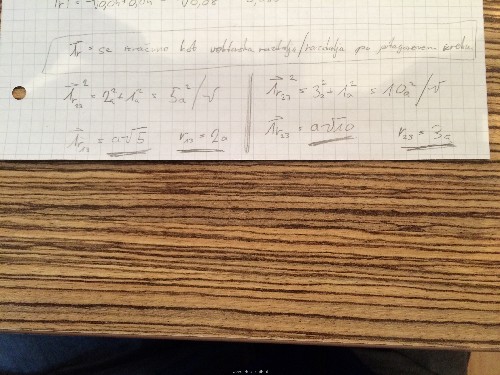 1r = se računa kot vektorska razdalja/razdalja po pitagorovem izreku
1r₁₃² = 2a² + 1a² = 5a² /√
1r₁₃ = a√5 r₁₃ = 2a
1r₂₃² = 3a² + 1a² = 10a² /√
1r₂₃ = a√10 r₂₃ = 3a